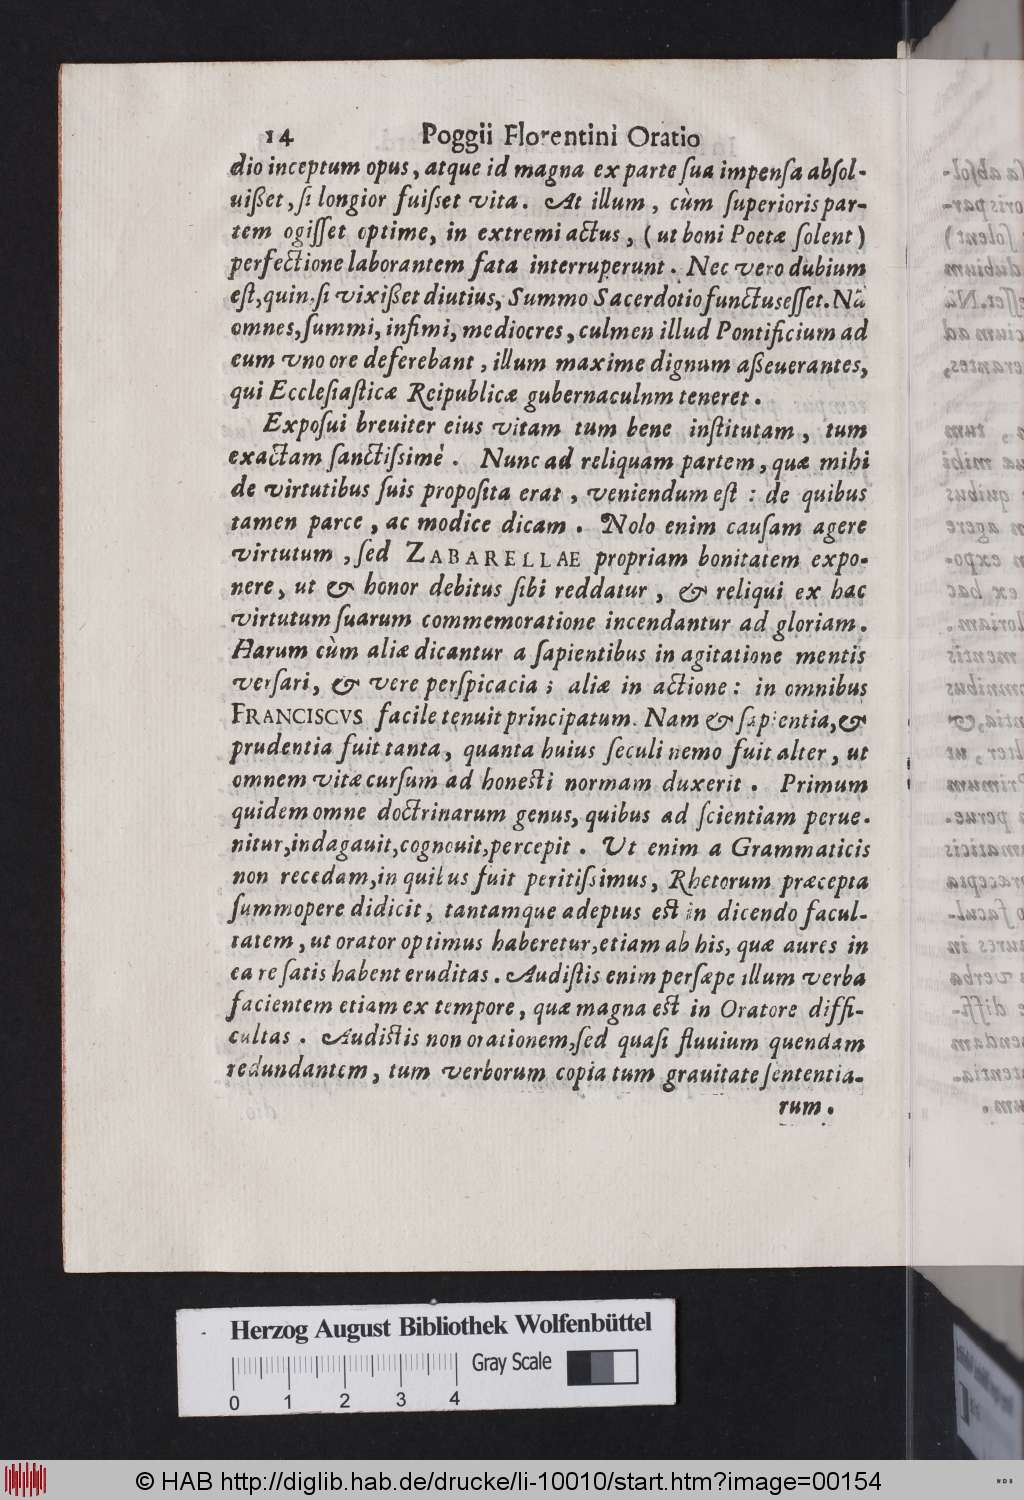 14 Poggii Florentini Oratio
dio inceptum opus, atque id magna ex parte ſua impenſa abſol-
uißet, ſi longior fuiſset vita. At illum, cùm ſuperioris par-
tem egiſſet optime, in extremi actus, (ut boni Poetæ ſolent)
perfectione laborantem fata interruperunt. Nec vero dubium
eſt, quin, ſi vixißet diutius, Summo Sacerdotio functus eſſet. Nã
omnes, ſummi, infimi, mediocres, culmen illud Pontificium ad
eum vno ore deferebant, illum maxime dignum aßeuerantes,
qui Eccleſiaſticæ Reipublicæ gubernaculnm teneret.
Expoſui breuiter eius vitam tum bene inſtitutam, tum
exactam ſanctiſsimè. Nunc ad reliquam partem, quæ mihi
de virtutibus ſuis propoſita erat, veniendum eſt: de quibus
tamen parce, ac modice dicam. Nolo enim cauſam agere
virtutum, ſed ZABARELLAE propriam bonitatem expo-
nere, ut & honor debitus ſibi reddatur, & reliqui ex hac
virtutum ſuarum commemoratione incendantur ad gloriam.
Harum cùm aliæ dicantur a ſapientibus in agitatione mentis
verſari, & vere perſpicacia; aliæ in actione: in omnibus
FRANCISCVS facile tenuit principatum. Nam & ſapientia, &
prudentia fuit tanta, quanta huius ſeculi nemo fuit alter, ut
omnem vitæ curſum ad honeſti normam duxerit. Primum
quidem omne doctrinarum genus, quibus ad ſcientiam perue-
nitur, indagauit, cognouit, percepit. Ut enim a Grammaticis
non recedam, in quibus fuit peritiſsimus, Rhetorum præcepta
ſummopere didicit, tantamque adeptus eſt in dicendo facul-
tatem, ut orator optimus haberetur, etiam ab his, quæ aures in
ea re ſatis habent eruditas. Audiſtis enim perſæpe illum verba
facientem etiam ex tempore, quæ magna eſt in Oratore diffi-
cultas. Audiſtis non orationem, ſed quaſi fluuium quendam
redundantem, tum verborum copia tum grauitate ſententia-
rum.
Herzog August Bibliothek Wolfenbüttel
Gray Scale
0 1 2 3 4
© HAB http://diglib.hab.de/drucke/li-10010/start.htm?image=00154